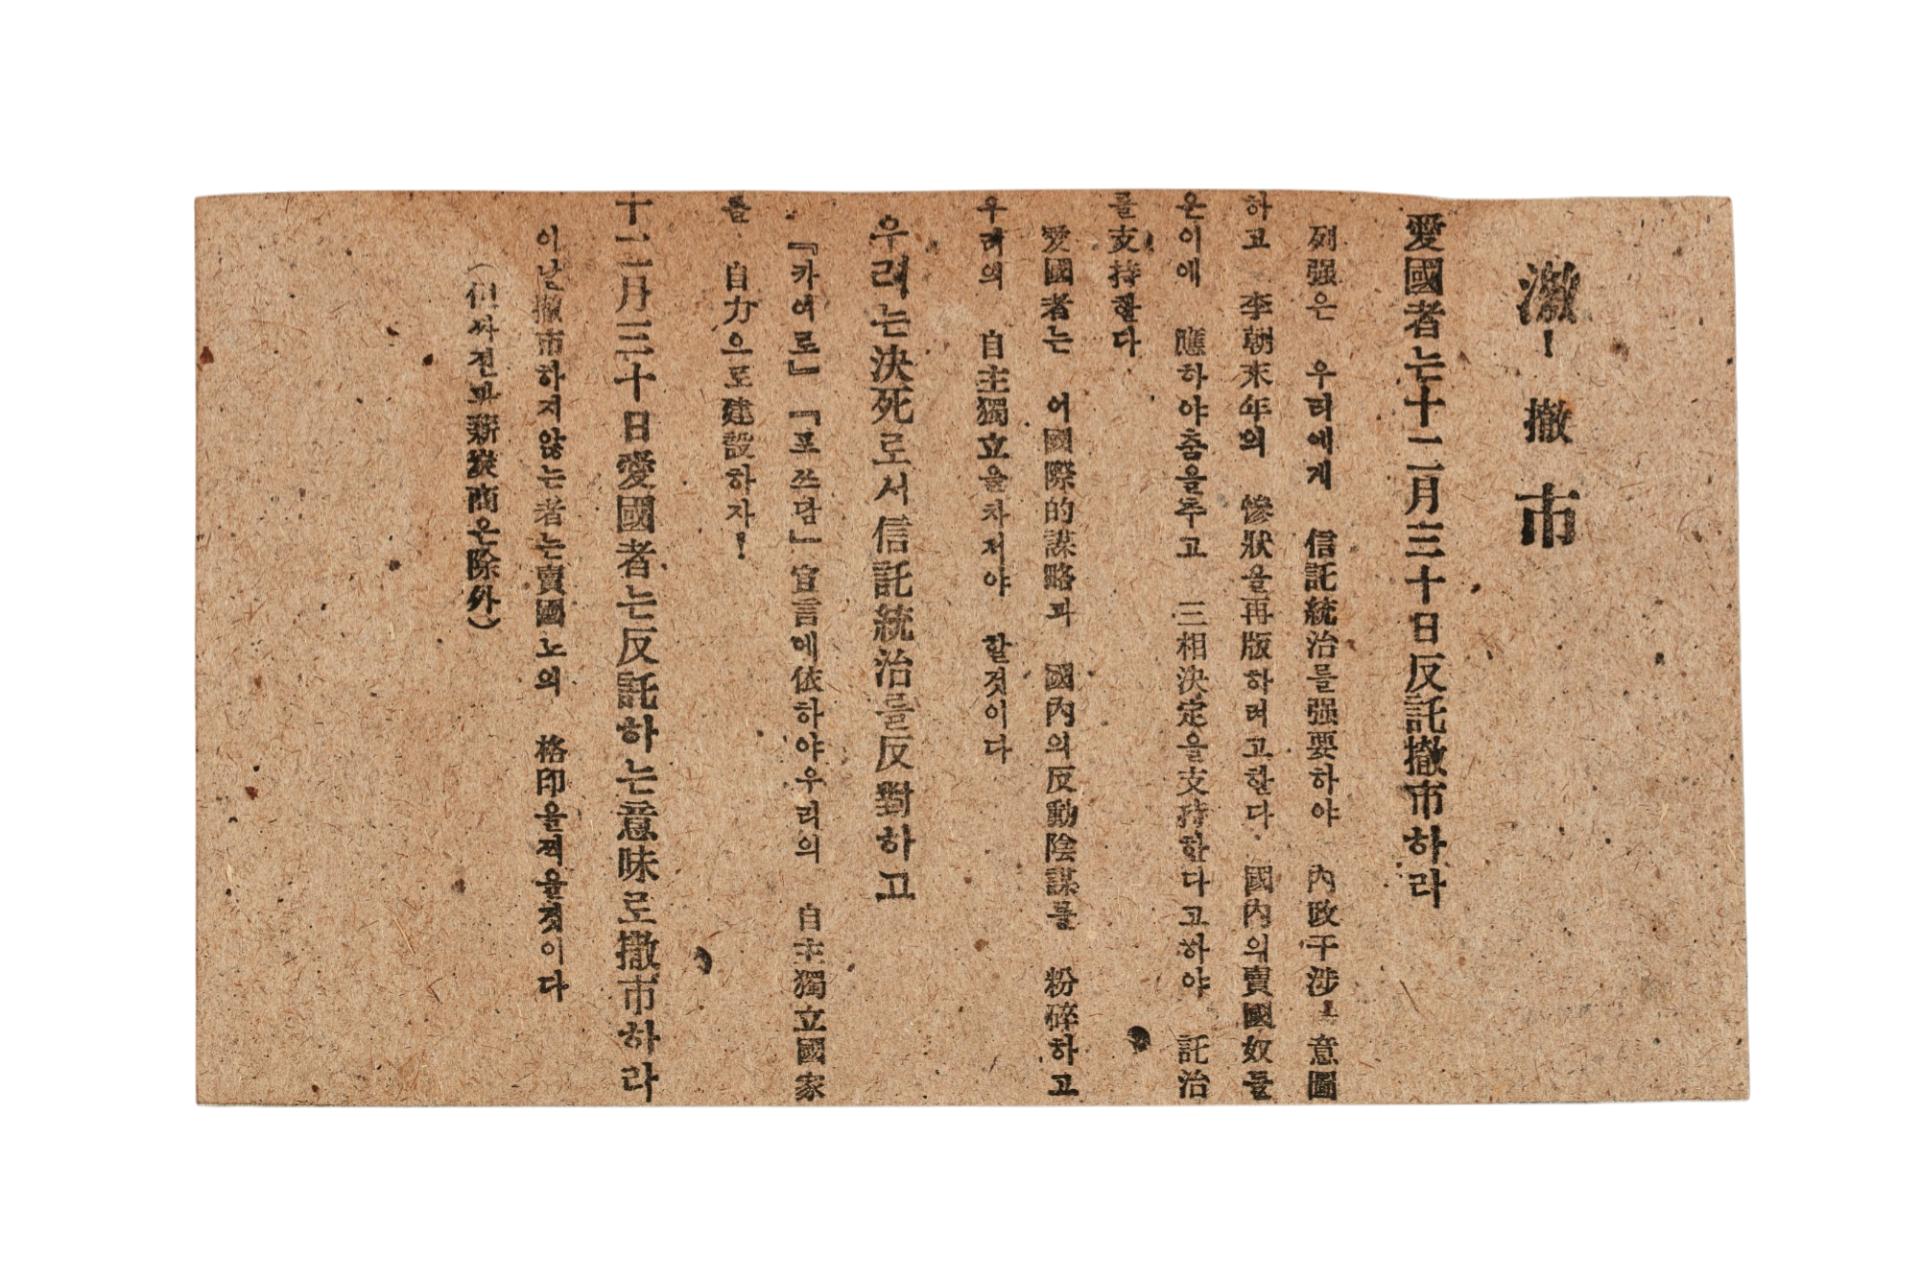 激！ 撤市
愛國者는十二月三十日反託撤市하라
列强은 우리에게 信託統治를强要하야 內政干涉 意圖
하고 李朝末年의 慘狀을再版하려고한다. 國內의賣國奴들
은이에 應하야춤을추고 三相決定을支持한다고하야 託治
를支持한다
愛國者는 어國際的謀略과 國內의反動陰謀를 粉碎하고
우리의 自主獨立을차저야 할것이다
우리는決死로서信託統治를反對하고
『카이로』『포쓰담』宣言에依하야우리의 自主獨立國家
를 自力으로建設하자！
十二月三十日愛國者는反託하는意味로撤市하라
이날撤市하지않는者는賣國노의 格印을찍을것이다
（但싸전과薪炭商은除外）